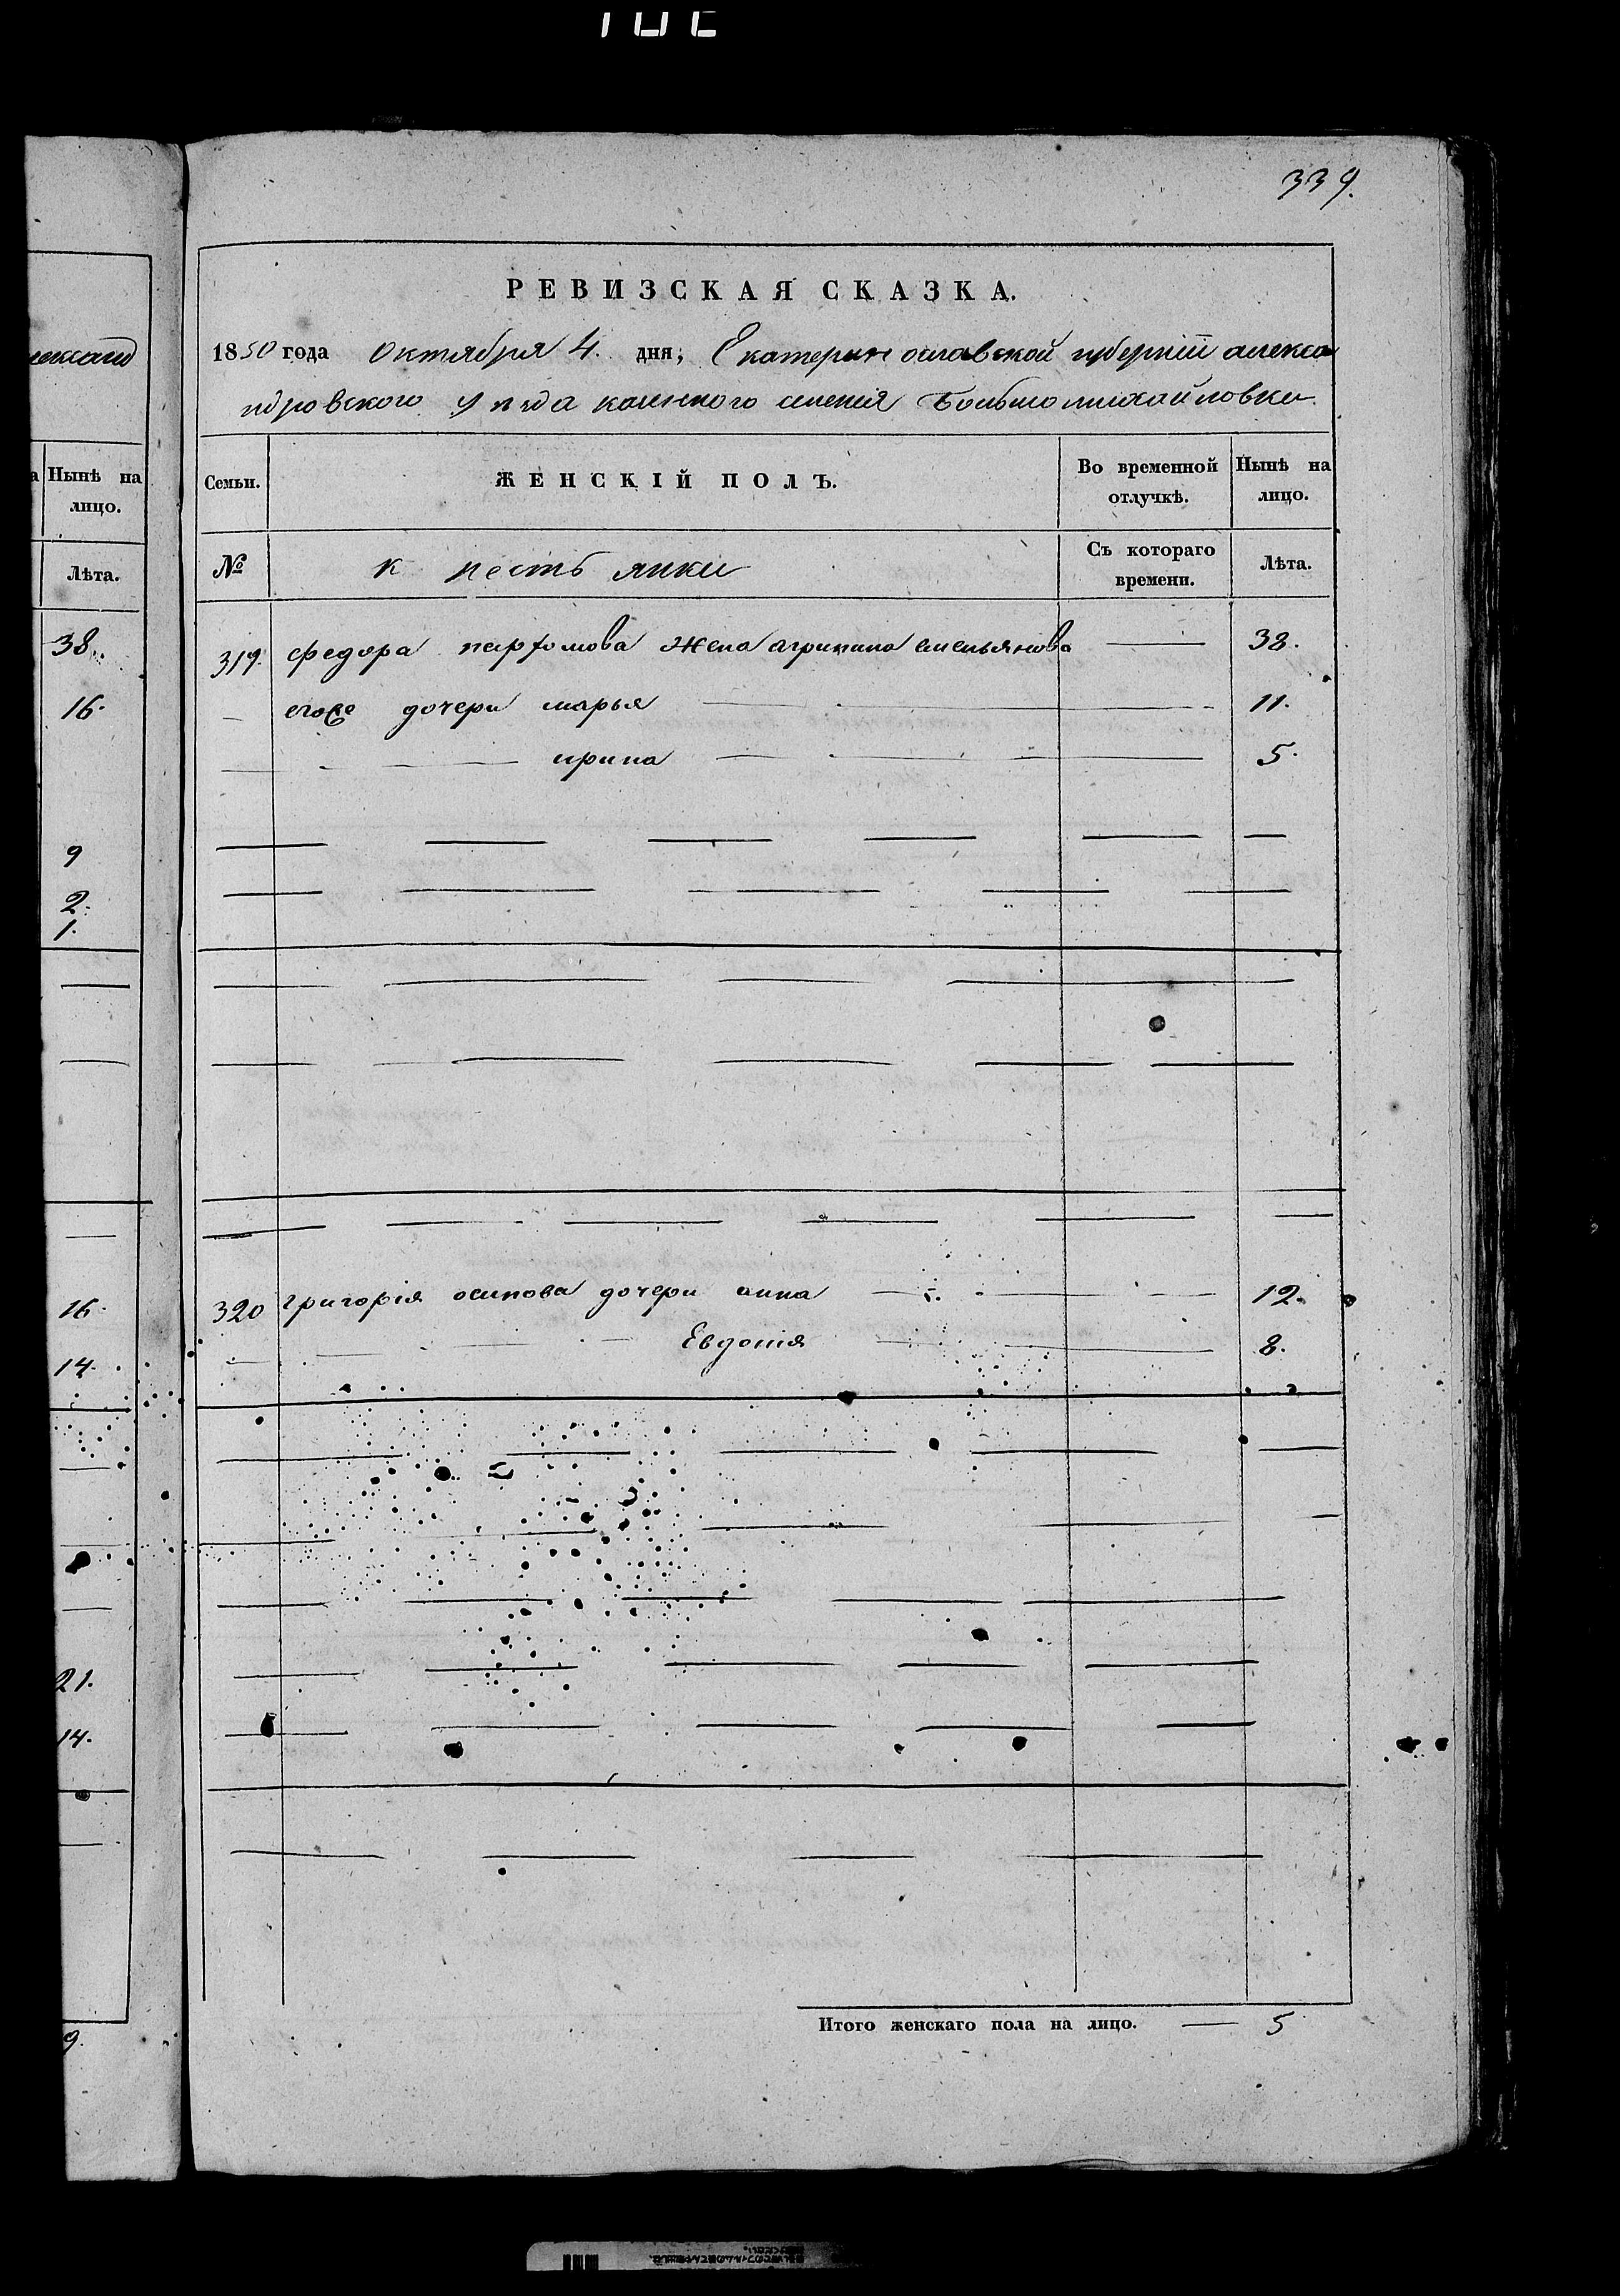 339.
РЕВИЗСКАЯ СКАЗКА.
1850 года Октября 4. дня, Екатеринославской губернии алекса
ндровского уезда казенного селения Большомихайловки.
Семьи. ЖЕНСКІЙ ПОЛЪ. Во временной отлучкѣ. Нынѣ на лицо.
№ Съ котораго времени. Лѣта.
319. федора парфомова жена агрипина емельянова — 38.
— егоже дочери марья — 11.
— ирина — 5.
320 григорія осипова дочери анна — 12.
— Евдокія — 8.
Итого женскаго пола на лицо. — 5
Нынѣ на лицо.
Лѣта.
38.
16.
9
2.
1.
16.
14.
21.
14.
9.